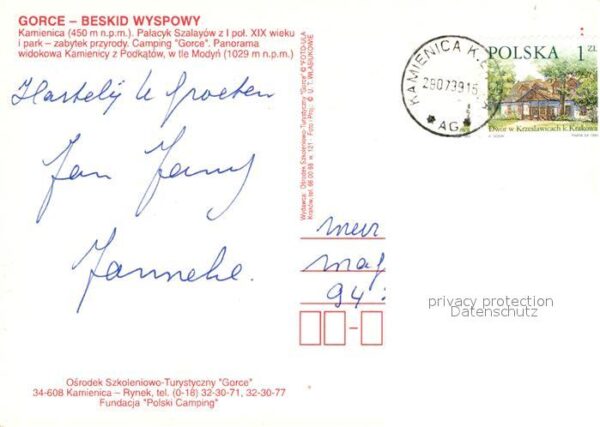 GORCE – BESKID WYSPOWY
Kamienica (450 m n.p.m.). Pałacyk Szalayów z I poł. XIX wieku
i park – zabytek przyrody. Camping "Gorce". Panorama
widokowa Kamienicy z Podkątów, w tle Modyń (1029 m n.p.m.)
Hartelijke Groeten
Jan
Janneke.
Wydawca: Ośrodek Szkoleniowo-Turystyczny "Gorce" © "FOTO-ULA
Kraków, tel. 66 00 68 w. 121 • Foto i Proj. © U. T. WŁASIUKOWIE
KAMIENICA K.
28073915
* AG *
POLSKA 1 ZŁ
Dwór w Krzesławicach k. Krakowa
94
privacy protection
Datenschutz
Ośrodek Szkoleniowo-Turystyczny "Gorce"
34-608 Kamienica – Rynek, tel. (0-18) 32-30-71, 32-30-77
Fundacja "Polski Camping"